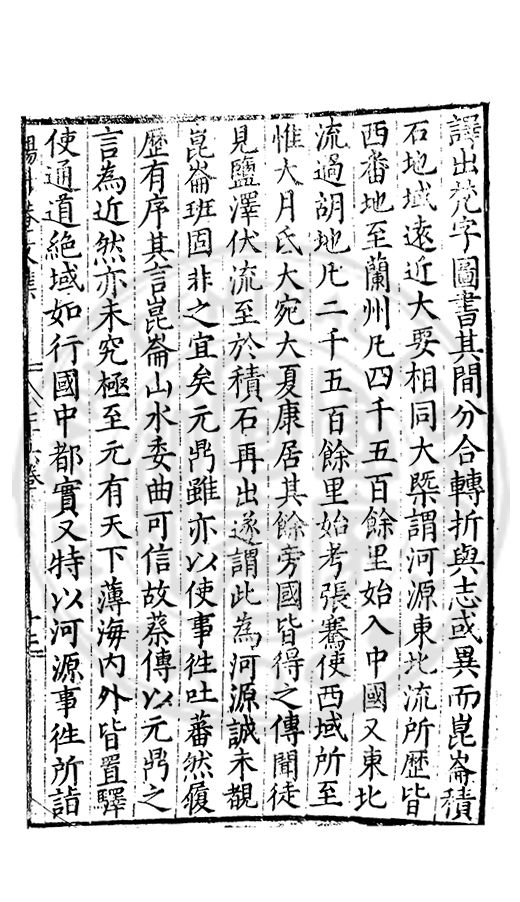 譯出梵字圖書其間分合轉折與志或異而崑崙積
石地域遠近大要相同大槩謂河源東北流所歷皆
西番地至蘭州凡四千五百餘里始入中國又東北
流過胡地凡二千五百餘里始考張騫使西域所至
惟大月氏大宛大夏康居其餘旁國皆得之傳聞徒
見鹽澤伏流至於積石再出遂謂此為河源誠未覩
崑崙班固非之宜矣元鼎雖亦以使事徃吐蕃然履
歷有序其言崑崙山水委曲可信故蔡傳以元鼎之
言為近然亦未究極至元有天下薄海內外皆置驛
使通道絕域如行國中都實又特以河源事徃所詣